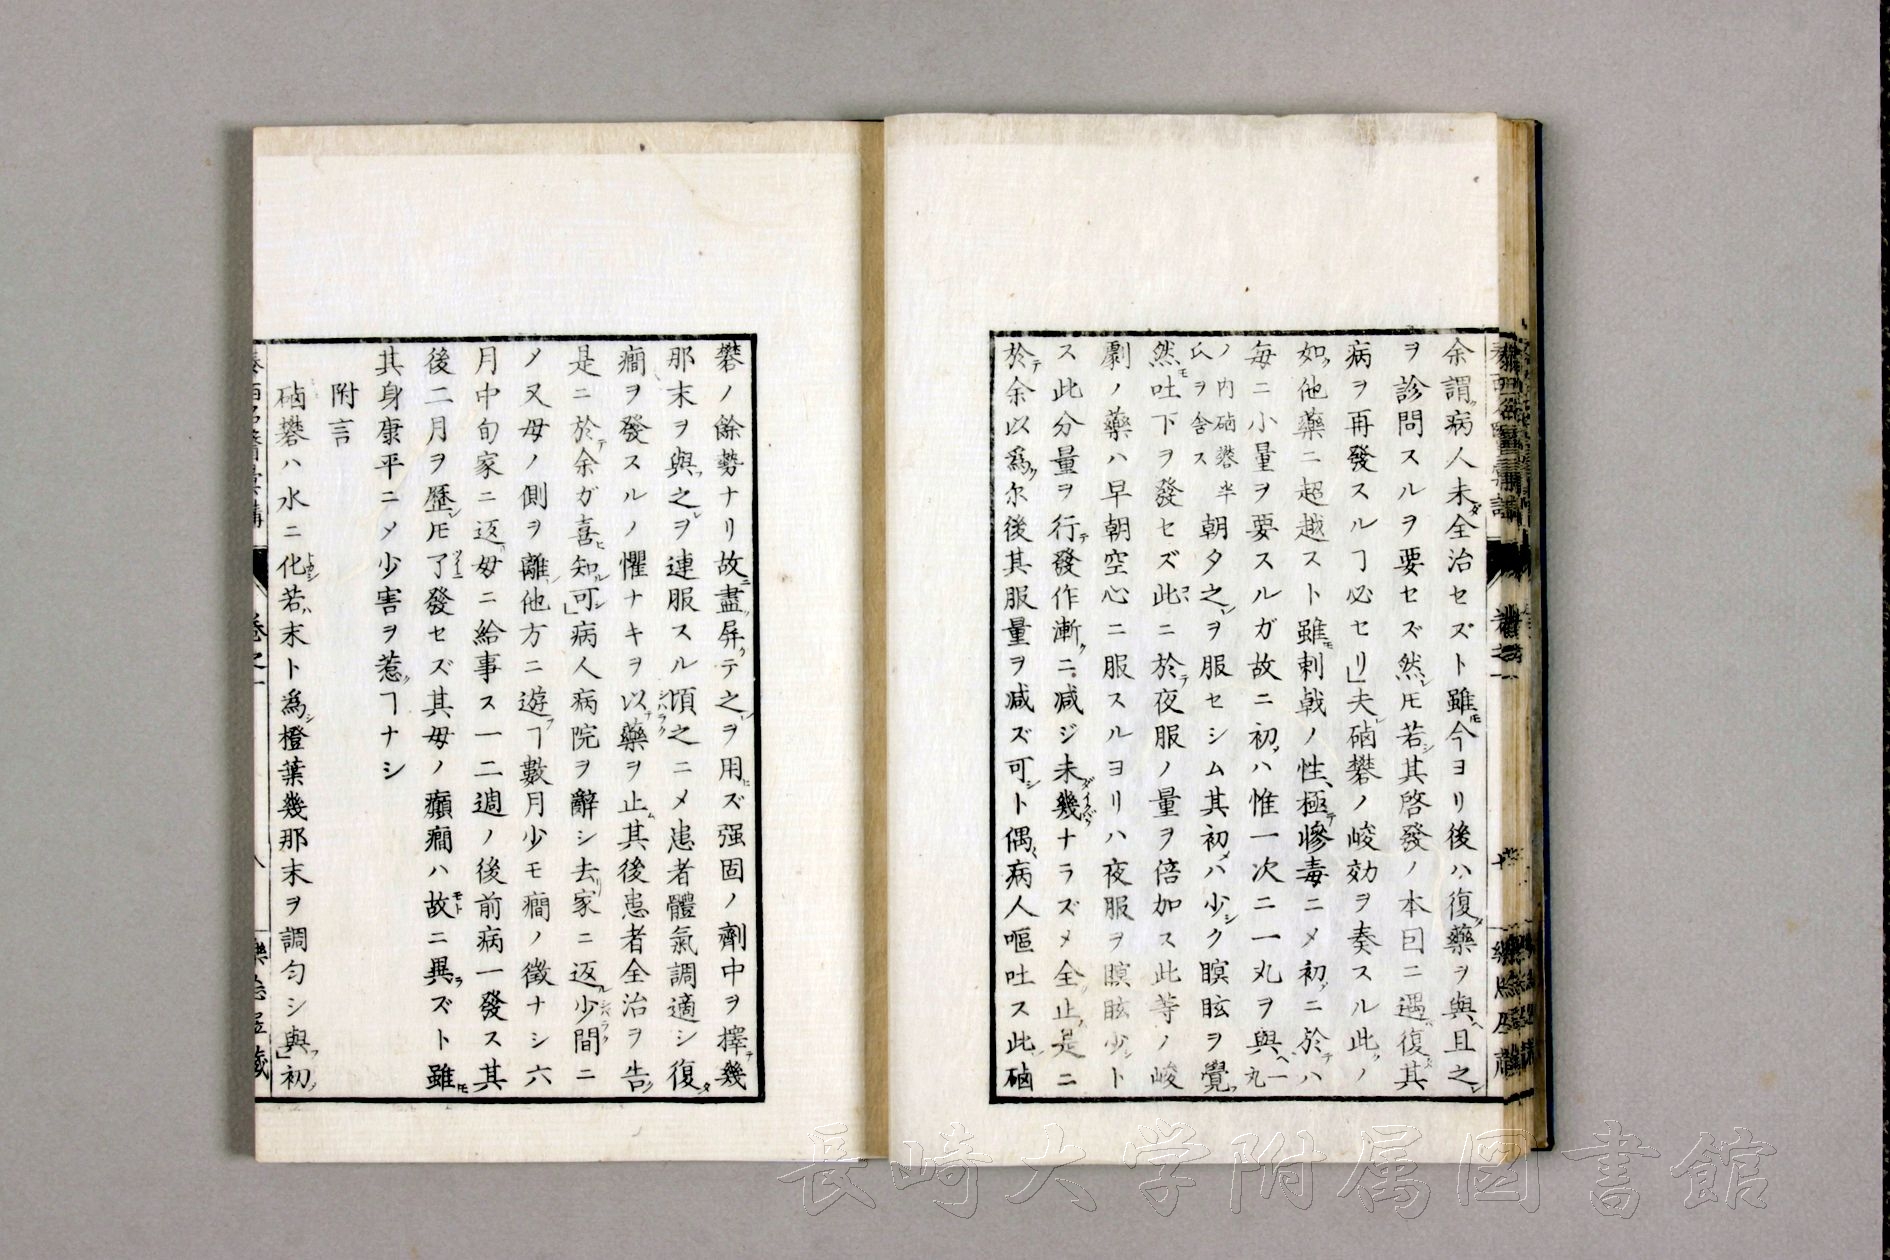 余謂ク病人未ダ全治セズト雖モ今ヨリ後ハ復タ藥ヲ與ヘ且之シ
ヲ診問スルヲ要セズ然レ𪜈若シ其啓發ノ本因ニ遇ヘバ復タ其
病ヲ再發スルヿ必セリ」夫レ硇礬ノ峻効ヲ奏スル此クノ
如ク他藥ニ超越スト雖モ刺戟ノ性、極テ慘毒ニメ初ニ於テハ
毎ニ小量ヲ要スルガ故ニ初メハ惟一次ニ一丸ヲ與ヘ一丸
ノ内硇礬半
氏ヲ舎ス
朝夕之レヲ服セシム其初メハ少シク瞑眩ヲ覺フ
然モ吐下ヲ發セズ此コニ於テ夜服ノ量ヲ倍加ス此等ノ峻
劇ノ藥ハ早朝空心ニ服スルヨリハ夜服ヲ瞑眩少シト
ス此分量ヲ行テ發作漸クニ減ジ未ダイクバクナラズメ全ク止ム是ニ
於テ余以爲ク尔後其服量ヲ減ズ可シト偶〻病人嘔吐ス此レ硇
礬ノ餘勢ナリ故ニ盡ク屏ケテ之レヲ用ヒズ强固ノ劑中ヲ擇テ幾
那末ヲ與フ之レヲ連服スル頃之ニメ患者體氣調適シ復タ
癎ヲ發スルノ懼ナキヲ以テ藥ヲ止ム其後患者全治ヲ告グ
是ニ於テ余ガ喜ヒ知ル可シ」病人病院ヲ辭シ去リ家ニ返ル少間ニ
メ又母ノ側ヲ離レ他方ニ遊フヿ數月少モ癎ノ徵ナシ六
月中旬家ニ返リ母ニ給事ス一二週ノ後前病一發ス其
後二月ヲ歷シ𪜈了ニ發セズ其母ノ癲癎ハ故ニ異ラズト雖モ
其身康平ニメ少害ヲ惹クヿナシ
附言
硇礬ハ水ニ化シ若ハ末ト爲シ橙葉幾那末ヲ調勻シ與フ」初メ
泰西名醫彙講
卷之一
八
樂怠居藏
長崎大学附属図書館